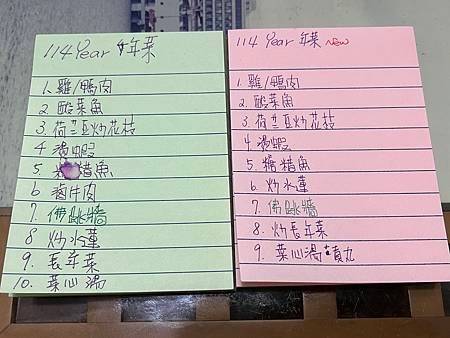 114 Year 年菜
1. 雞/鴨肉
2. 酸菜魚
3. 荷兰豆炒花枝
4 燙蝦
5. 糖醋魚
6 滷牛肉
7. 佛跳牆
8 炒水蓮
9. 長年菜
10. 菜心湯
114 Year 年菜 New
1. 雞/鴨肉
2. 酸菜魚
3. 荷兰豆炒花枝
4 燙蝦
5. 糖醋魚
6. 炒水蓮
7. 佛跳牆
8. 炒長年菜
9. 菜心湯+貢丸